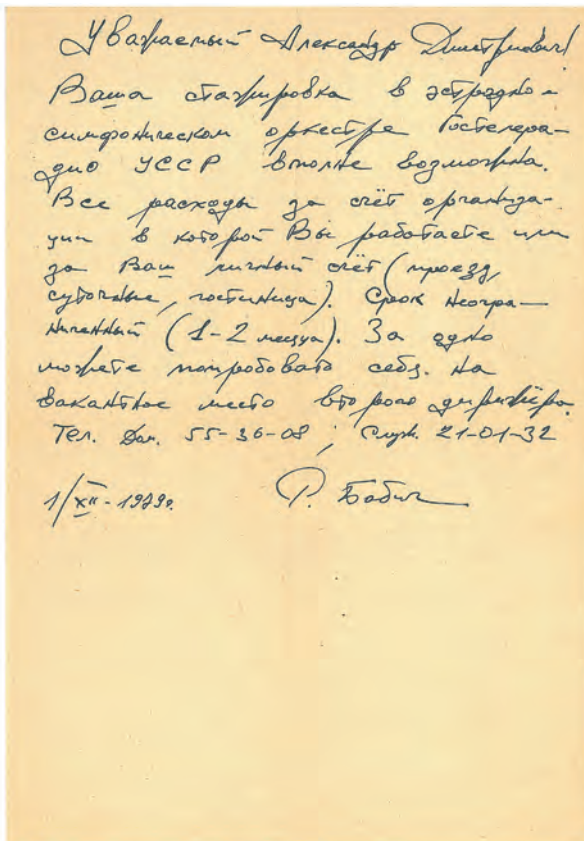 Уважаемый Александр Дмитриевич!
Ваша стажировка в эстрадно-
симфоническом оркестре Гостелера-
дио УССР вполне возможна.
Все расходы за счёт организа-
ции в которой Вы работаете или
за Ваш личный счёт (проезд,
суточные, гостиница). Срок неогра-
ниченный (1-2 месяца). За одно
можете попробовать себя на
вакантное место второго дирижёра.
Тел. Дом. 55-36-08; Служ. 21-01-32
1/XII-1979г. Р. Бабич